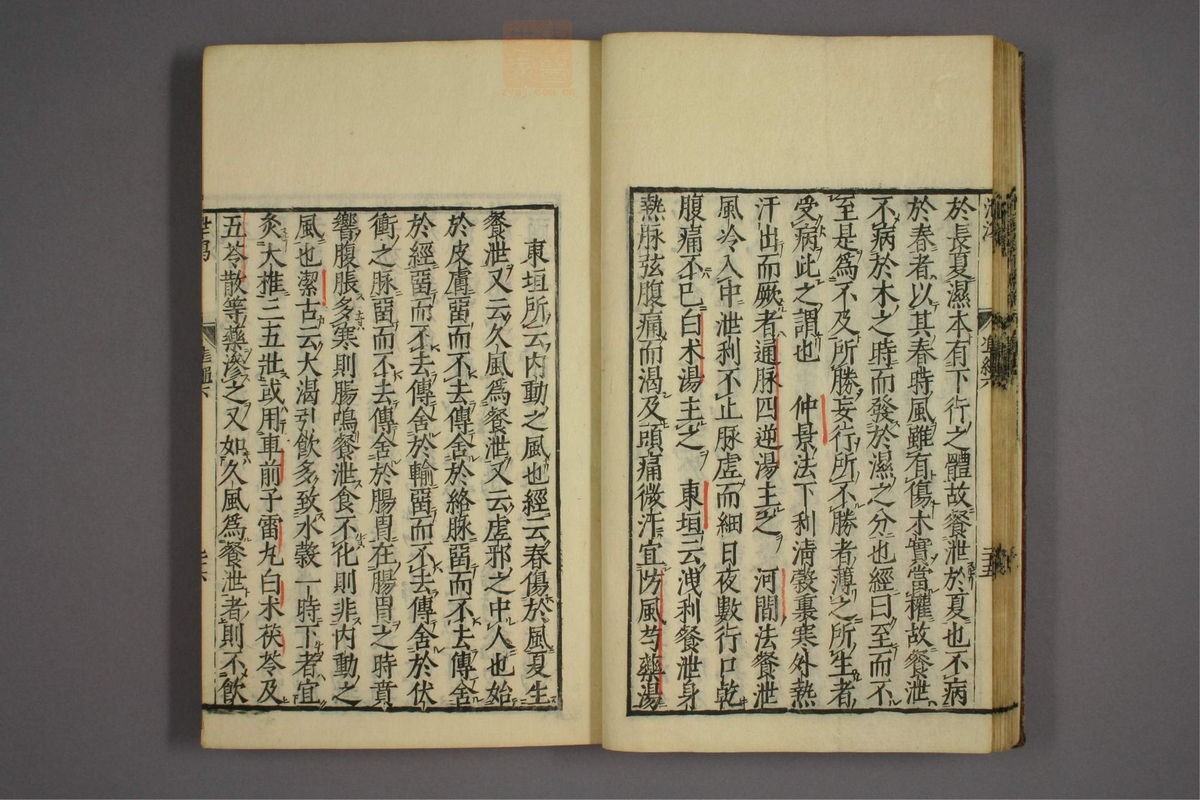 於長夏濕本有下行之體故飧泄於夏也不病
於春者以其春時風雖有傷木實當權故飧泄
不病於木之時而發於濕之分也經曰至而不
至是爲不及所勝妄行所不勝者薄之所生者
受病此之謂也 仲景法下利清穀裏寒外熱
汗出而厥者通脉四逆湯主之 河間法飧泄
風冷入中泄利不止脉虛而細日夜數行口乾
腹痛不已白朮湯主之 東垣云洩利飧泄身
熱脉弦腹痛而渴及頭痛微汗宜防風芍藥湯
東垣所云内動之風也經云春傷於風夏生
飧泄又云久風爲飧泄又云虛邪之中人也始
於皮膚畱而不去傳舍於絡脉畱而不去傳舍
於經畱而不去傳舍於輸畱而不去傳舍於伏
衝之脉畱而不去傳舍於腸胃在腸胃之時賁
響腹脹多寒則腸鳴飧泄食不化則非内動之
風也潔古云大渴引飲多致水穀一時下者宜
灸大椎三五壯或用車前子雷丸白朮茯苓及
五苓散等藥滲之又如久風爲飧泄者則不飲